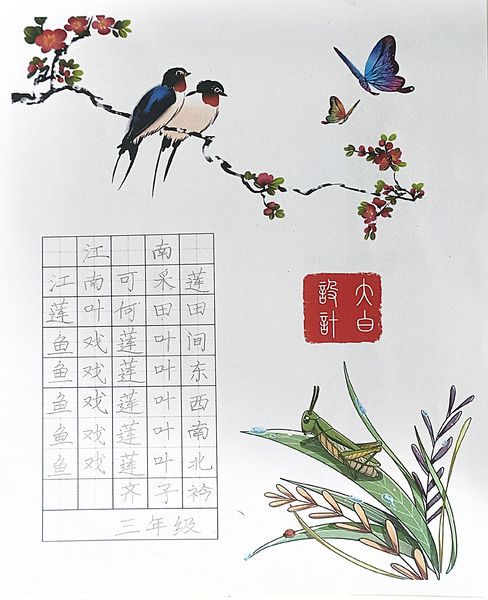 江南
江南可采莲
莲叶何田田
鱼戏莲叶间
鱼戏莲叶东
鱼戏莲叶西
鱼戏莲叶南
鱼戏莲叶北
齐子衿
三年级
大白
設計